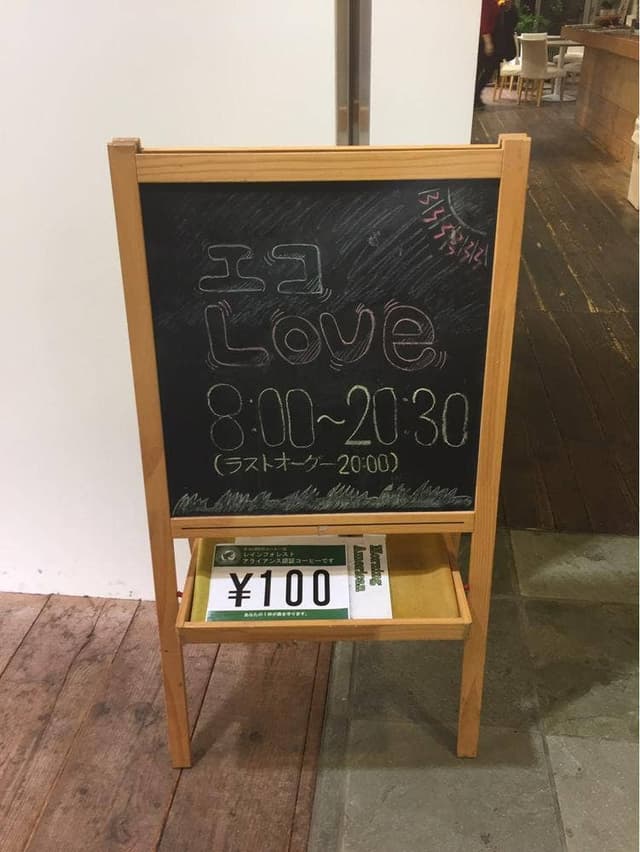 エコ
Love
8:00〜20:30
(ラストオーダー20:00)
レインフォレスト
アライアンス認証コーヒーです
¥100
Morning
American
あなたの1杯が森を守ります。